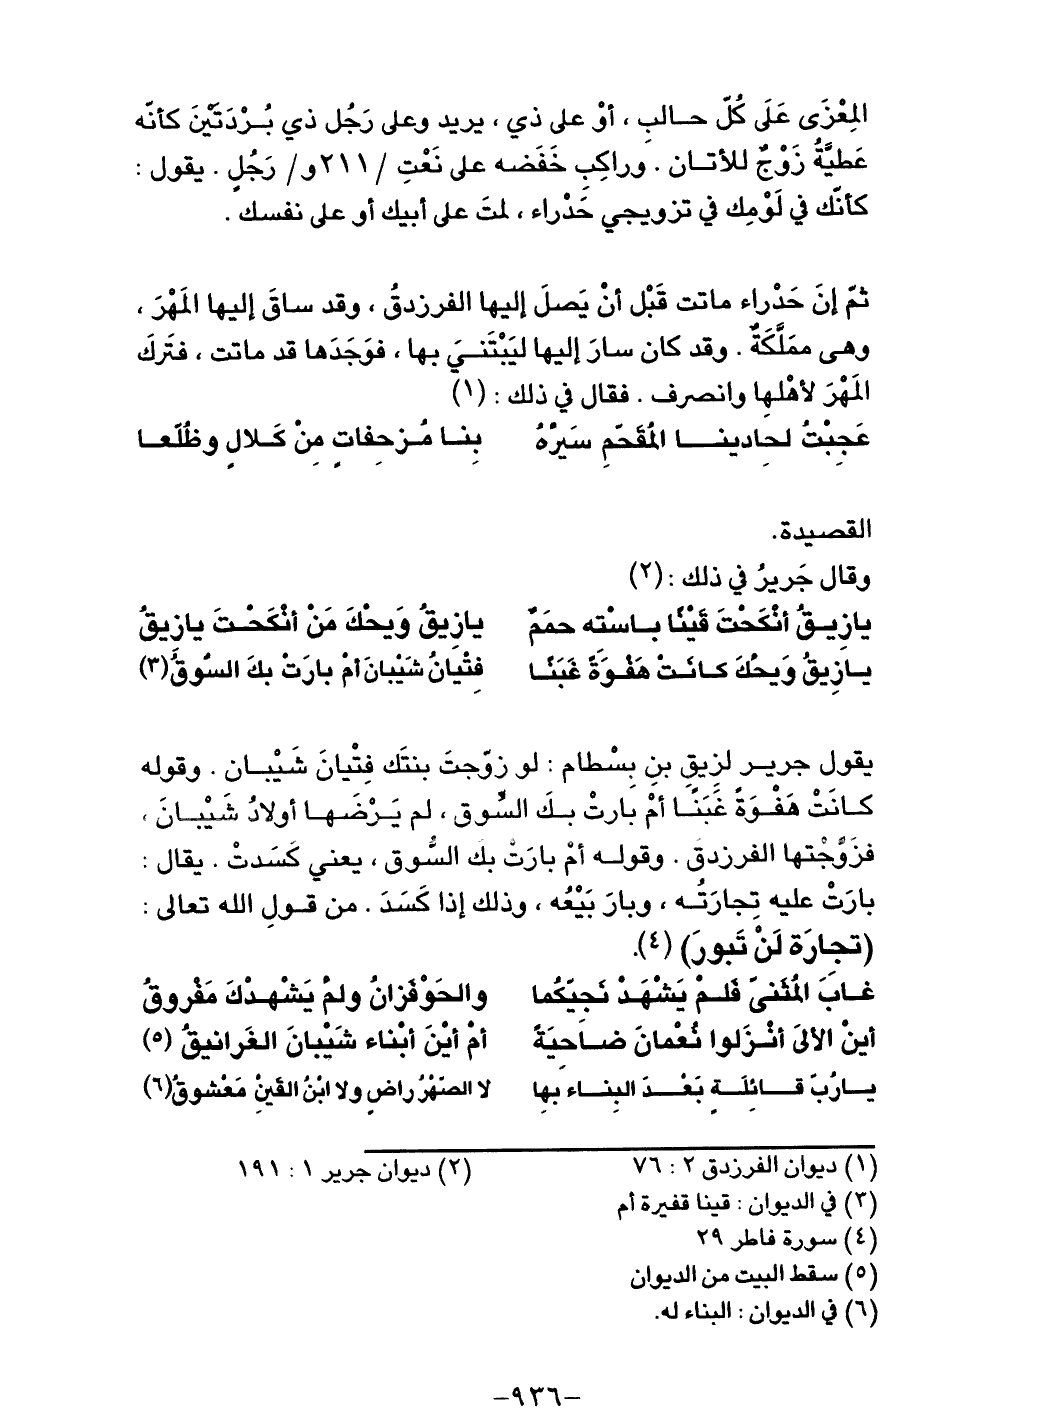 المِعْزَى عَلَى كُلّ حالبِ ، أوْ على ذي ، يريد وعلى رَجُل ذي بُرْدَتَيْنَ كأنّه
عَطيَّةُ زَوْجٌ للأتان . وراكِبِ خَفَضه على نَعْتِ /٢١١و/ رَجُلٍ . يقول :
كأنّك في لَوْمِك في تزويجي حَدْراء ، لمتَ على أبيك أو على نفسك .
ثمّ إنَ حَدْراء ماتت قَبْل أنْ يَصلَ إليها الفرزدقُ ، وقد ساقَ إليها المَهْرَ ،
وهى ممَلَّكَةٌ . وقد كان سارَ إليها ليَبْتَنيَ بها ، فوَجَدَها قد ماتت ، فتَركَ
المَهْرَ لأهْلِها وانصرف . فقال في ذلك : (١)
عَجِبْتُ لحادينا المُقَحّمِ سَيرُهُ بِنا مُزحِفاتٍ مِنْ كَلالٍ وظُلَّعا
القصيدة.
وقال جَريرُ في ذلك : (٢)
يازِيقُ أنْكَحْتَ قَيْنًا باسْتِه حمَمٌ يازِيقُ وَيحْكَ مَنْ أنْكَحْتَ يازِيقُ
يازِيقُ وَيحْكَ كانَتْ هَفْوَةً غَبَنًا فتْيانُ شَيْبَانَ أمْ بارَتْ بكَ السُوقُ(٣)
يقول جرير لزِيقِ بنِ بِسْطام : لو زوّجتَ بنتَك فِتْيانَ شَيْبان . وقوله
كانَتْ هَفْوَةً غَبَنًا أمْ بارتْ بكَ السُّوق ، لم يَرْضَها أولادُ شَيْبانَ ،
فزَوَّجْتها الفرزدق . وقوله أمْ بارَتْ بك السُّوق ، يعني كَسَدتْ . يقال :
بارَتْ عليه تِجارَتُه ، وبارَ بَيْعُه ، وذلك إذا كَسَدَ . من قولِ الله تعالى :
(تجارَة لَنْ تَبورَ) (٤).
غابَ المُثَنىّ فَلمْ يَشْهَدْ نَجيّكُما والحَوْفَزانُ ولمْ يَشْهدْكَ مَفْروقُ
أينْ الألىَ أنْزَلوا نُعْمانَ ضاحِيَةً أمْ أيْنَ أبْناء شَيْبانَ الغَرانيقُ (٥)
يارُبّ قائِلَةٍ بَعْدَ البِناء بِها لا الصّهْرُ راضٍ ولا ابْنُ القَينْ مَعْشوقُ(٦)
(١) ديوان الفرزدق ٢ : ٧٦ (٢) ديوان جرير ١ : ١٩١
(٣) في الديوان : قينا قفيرة أم
(٤) سورة فاطر ٢٩
(٥) سقط البيت من الديوان
(٦) في الديوان : البناء له.
–٩٣٦–